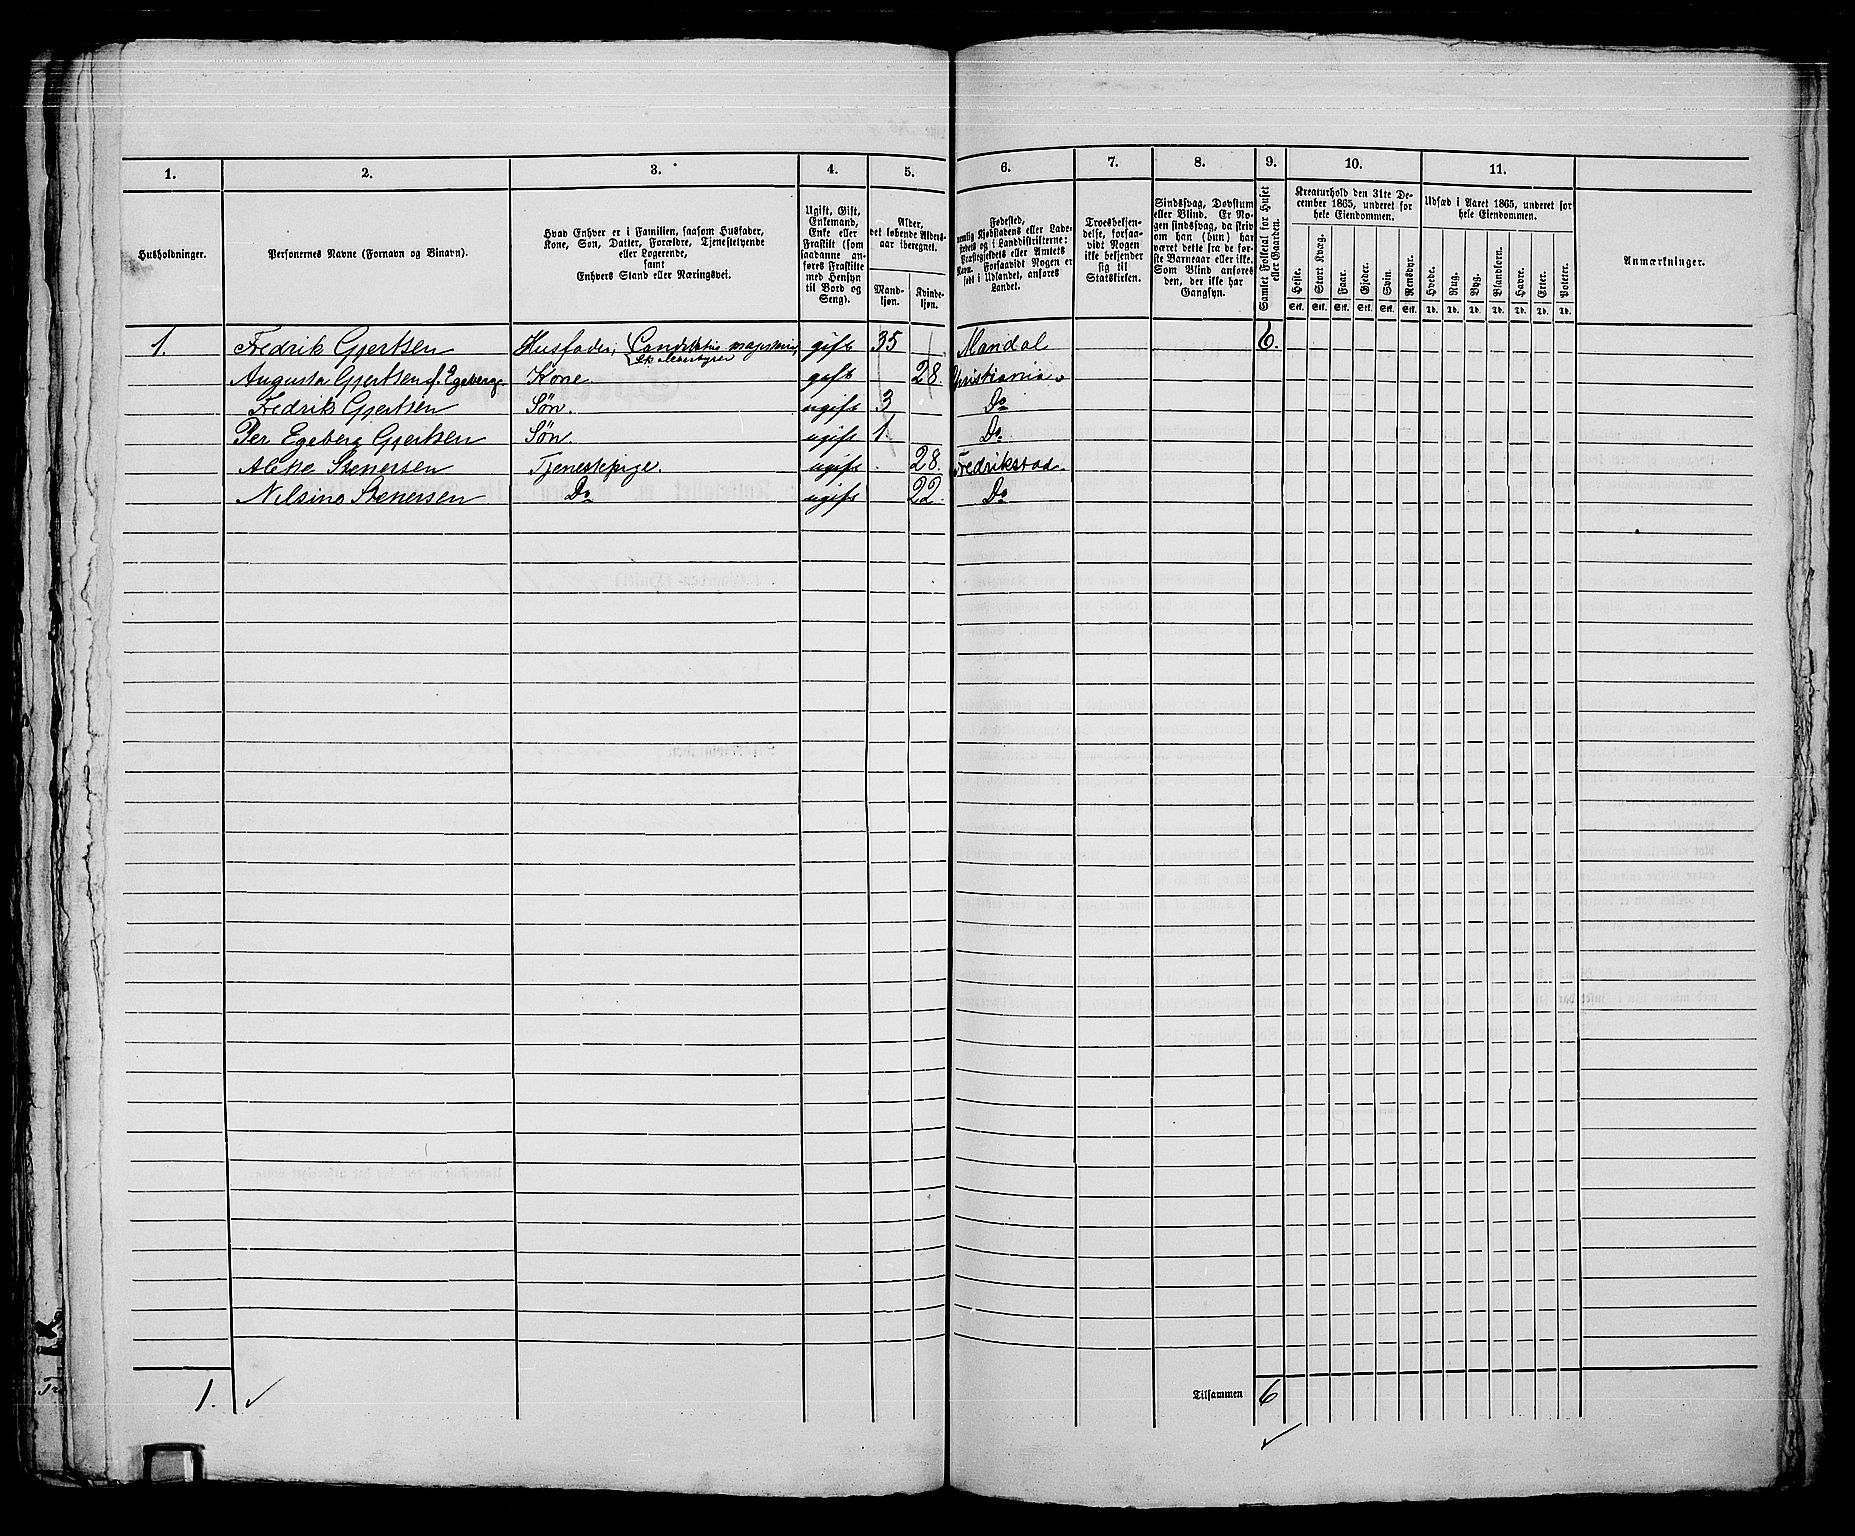 1. 2. 3. 4. 5. 6. 7. 8. 9. 10. 11.
Husholdninger.
Personernes Navne (Fornavn og Binavn).
Hvad Enhver er i Familien, saasom Husfader,
Kone, Søn, Datter, Forældre, Tjenestetyende
eller Logerende,
samt
Enhvers Stand eller Næringsvei.
Ugift, Gift,
Enkemand,
Enke eller
Fraskilt (som
saadanne an-
føres Fraskilte
med Hensyn
til Bord og
Seng).
Alder,
det løbende Alders-
aar iberegnet.
Mand-
kjøn.
Kvinde-
kjøn.
Fødested,
nemlig Kjøbstadens eller Lade-
stedets og i Landdistrikterne:
Præstegjeldets eller Amtets
Navn. Forsaavidt Nogen er
født i Udlandet, anføres
Landet.
Troesbekjen-
delse, forsaa-
vidt Nogen
ikke bekjender
sig til
Statskirken.
Sindssvag, Døvstum
eller Blind. Er No-
gen sindssvag, da skriv
om han (hun) har
været dette fra de før-
ste Barneaar eller ikke.
Som Blind anføres
den, der ikke har
Gangsyn.
Samlet Folketal for Huset
eller Gaarden.
Kreaturhold den 31te De-
cember 1865, underet for
hele Eiendommen.
Heste. Stort Kvæg. Faar. Gjeder. Svin. Rensdyr.
Stk. Stk. Stk. Stk. Stk. Stk.
Udsæd i Aaret 1865, underet for
hele Eiendommen.
Hvede. Rug. Byg. Blandkorn. Havre. Erter. Poteter.
Td. Td. Td. Td. Td. Td. Td.
Anmærkninger.
1. Fredrik Gjertsen Husfader, Candidatus magisterii, gift 35 Mandal 6.
Sk. bestyrer
Augusta Gjertsen f. Egeberg. Kone. gift 28. Christiania
Fredrik Gjertsen Søn. ugift 3 Do
Per Egeberg Gjertsen Søn. ugift 1. Do
Alette Stenersen Tjenestepige. ugift 28. Fredrikstad
Nilsine Stenersen Do ugift 22. Do
1. ✓ Tilsammen 6
✓